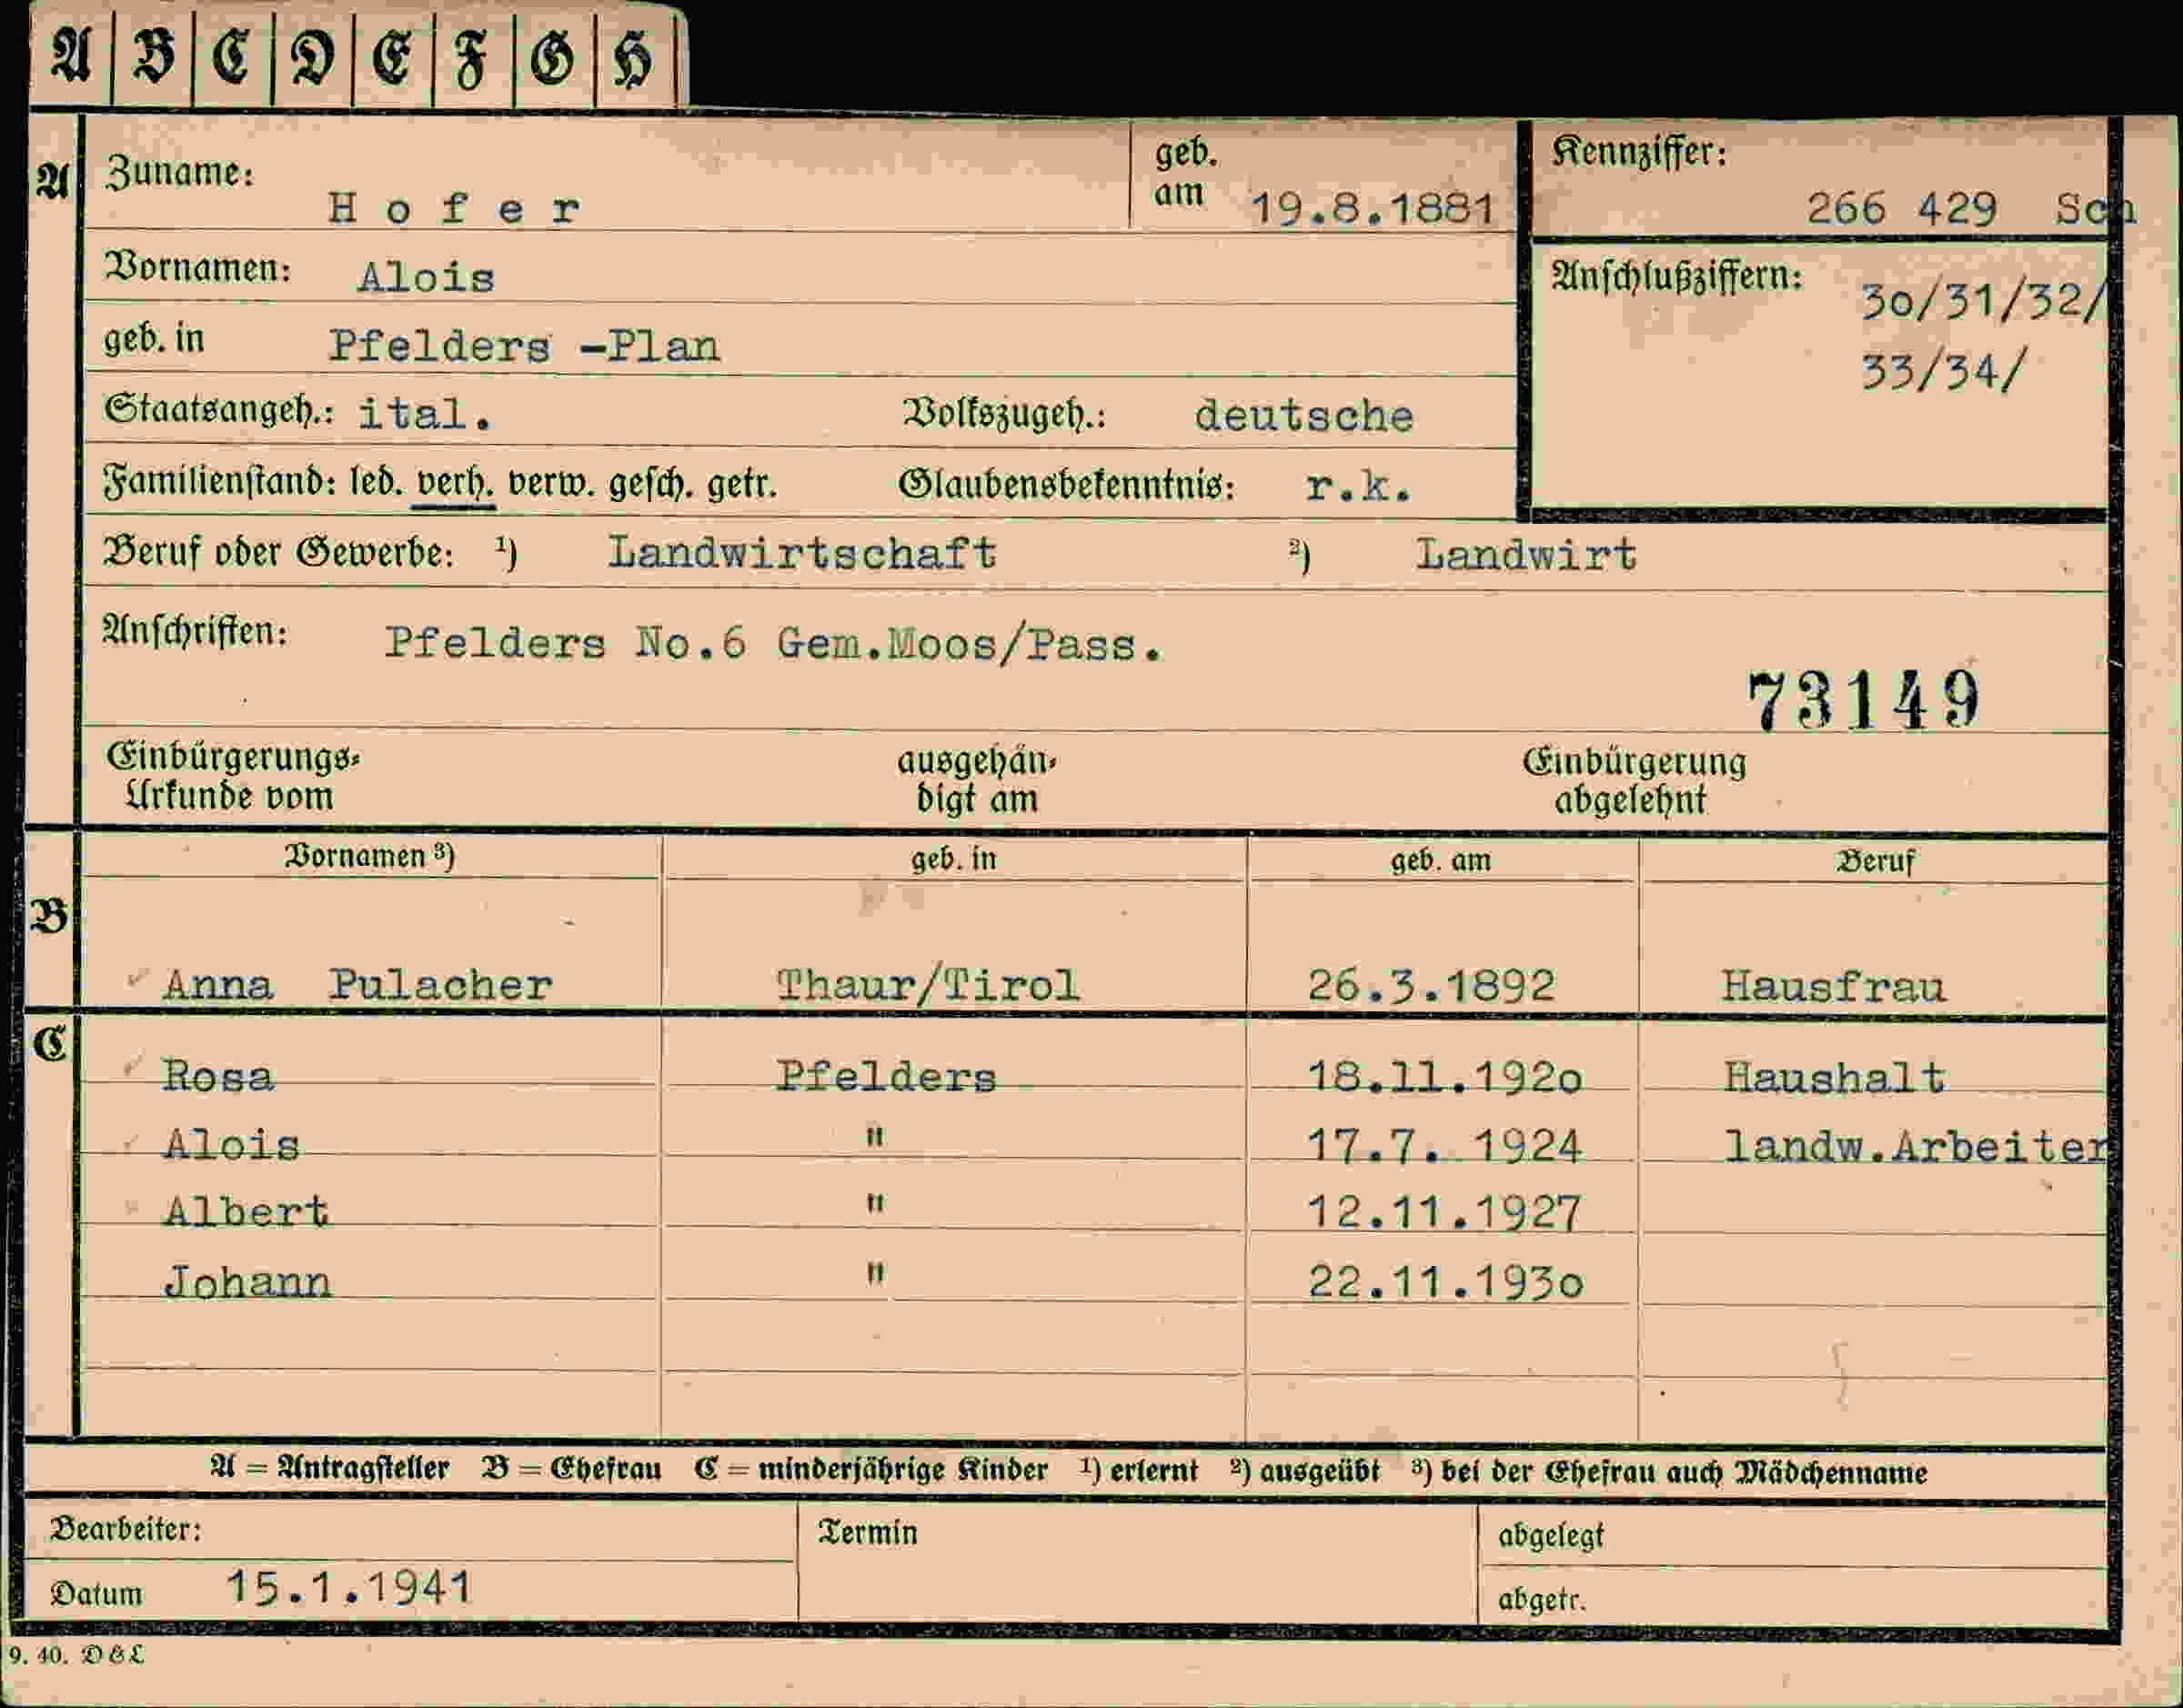 A B C D E F G H
A Zuname: Hofer geb. am 19.8.1881 Kennziffer: 266 429 Sch
Vornamen: Alois Anschlußziffern: 30/31/32/
geb. in Pfelders -Plan 33/34/
Staatsangeh.: ital. Volkszugeh.: deutsche
Familienstand: led. verh. verw. gesch. getr. Glaubensbekenntnis: r.k.
Beruf oder Gewerbe: ¹) Landwirtschaft ²) Landwirt
Anschriften: Pfelders No.6 Gem.Moos/Pass.
73149
Einbürgerungs- ausgehän- Einbürgerung
Urkunde vom digt am abgelehnt
Vornamen ³) geb. in geb. am Beruf
B
Anna Pulacher Thaur/Tirol 26.3.1892 Hausfrau
C
Rosa Pfelders 18.11.1920 Haushalt
Alois " 17.7. 1924 landw.Arbeiter
Albert " 12.11.1927
Johann " 22.11.1930
A = Antragsteller B = Ehefrau C = minderjährige Kinder ¹) erlernt ²) ausgeübt ³) bei der Ehefrau auch Mädchenname
Bearbeiter: Termin abgelegt
Datum 15.1.1941 abgetr.
9. 40. D & L